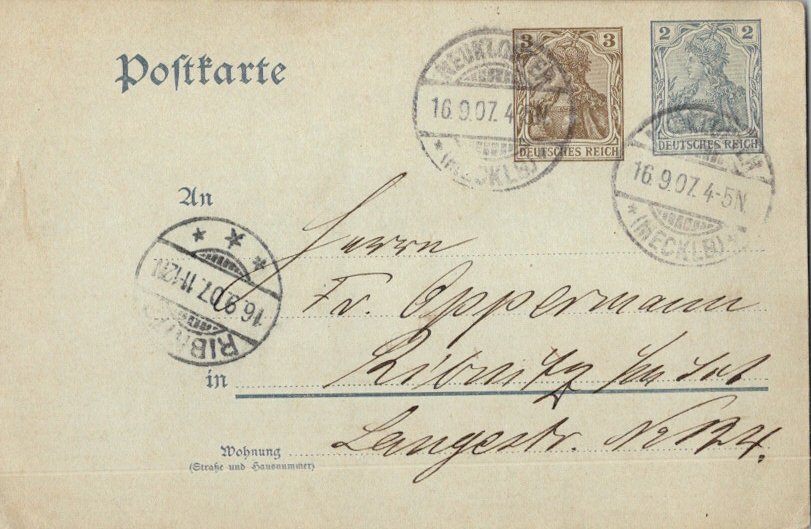 Postkarte
3 3
DEUTSCHES REICH
2 2
DEUTSCHES REICH
NEUKLOSTER
16.9.07. 4-5N
* (MECKLB) *
16.9.07. 4-5N
* (MECKLB) *
An
RIBNITZ
16.9.07. 11-12N
* * *
Herrn
Fr. Oppermann
in Ribnitz
Wohnung
(Straße und Hausnummer)
Langestr. No